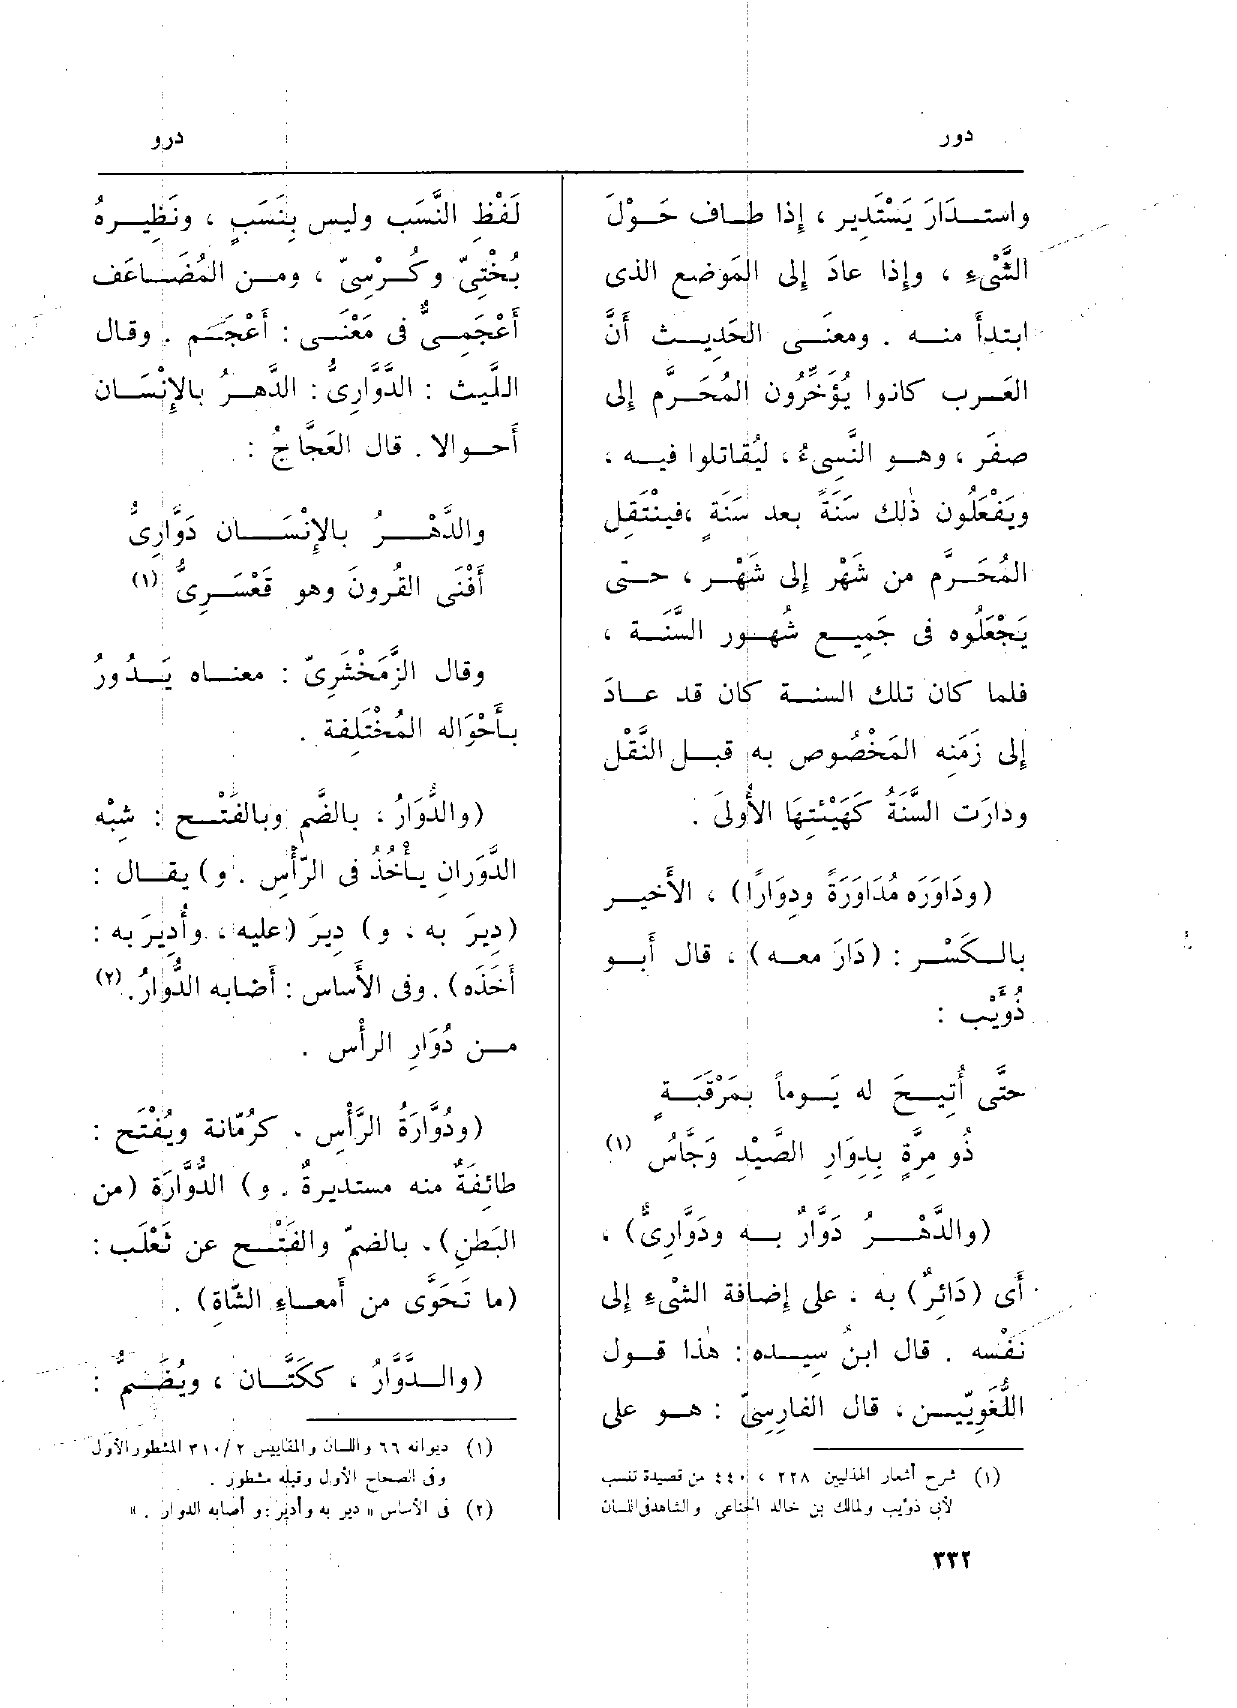 دور
درو
واستدارَ يَسْتَدِير ، إذا طاف حَوْلَ
الشَّىْءِ ، وإذا عادَ إلى المَوضع الذى
ابتدأَ منه . ومعنَى الحَدِيث أَنَّ
العَرب كانوا يُؤَخِّرُون المُحَرَّم إلى
صفَر ، وهو النَّسِىءُ ، ليُقاتلوا فيه ،
ويَفْعَلُون ذٰلك سَنَةً بعد سَنَةٍ ،فينْتَقِل
المُحَرَّم من شَهْر إلى شَهْر ، حتّى
يَجْعَلُوه فى جَمِيع شُهور السَّنَة ،
فلما كان تلك السنة كان قد عادَ
إلى زَمَنِه المَخْصُوص به قبل النَّقْل
ودارَت السَّنَةُ كَهَيْئتِهَا الأُولَى .
(ودَاوَرَه مُدَاوَرَةً ودِوَارًا) ، الأَخير
بالكَسْر : (دَارَ معه) ، قال أَبو
ذُؤَيْب :
حتَّى أُتِيحَ له يَوماً بمَرْقَبَةٍ
ذُو مِرَّةٍ بِدِوَارِ الصَّيْدِ وَجَّاسُ (١)
(والدَّهْرُ دَوَّارٌ به ودَوَّارِىٌّ) ،
أَى (دَائِرٌ) به ، على إضافة الشْىءِ إلى
نَفْسه . قال ابنُ سِيده : هٰذا قول
اللُّغَوِيّين ، قال الفارِسِىّ : هو على
(١) شرح أشعار الهذليين ٢٢٨ ، ٤٤٠ من قصيدة تنسب
لأبى ذؤيب ولمالك بن خالد الخناعى والشاهدفى اللسان
لَفْظِ النَّسَب وليس بِنَسَبٍ ، ونَظِيرهُ
بُخْتِىّ وكُرْسِىّ ، ومن المُضَاعَف
أَعْجَمِىٌّ فى مَعْنَى : أَعْجَم . وقال
اللَّيث : الدَّوَّارِىُّ : الدَّهرُ بالإِنْسَان
أَحوالا . قال العَجَّاجُ :
والدَّهْرُ بالإِنْسَان دَوَّارِىُّ
أَفْنَى القُرونَ وهو قَعْسَرِىُّ (١)
وقال الزَّمَخْشَرِىّ : معناه يَدُورُ
بأَحْوَاله المُخْتَلِفة .
(والدُّوَارُ ، بالضَّم وبالفَتْح : شِبْه
الدَّوَرانِ يأْخُذُ فى الرّأْسِ . و) يقال :
(دِيرَ به ، و) دِيرَ (عليه ، وأُدِيرَ به :
أَخَذَه) . وفى الأَساس : أَصابه الدُّوَارُ.(٢)
من دُوَارِ الرأْس .
(ودُوَّارَةُ الرَّأْسِ ، كرُمّانة ويُفْتَح :
طائِفَةٌ منه مستديرةٌ . و) الدُّوَّارَة (من
البَطنِ) ، بالضمّ والفَتْح عن ثَعْلَب :
(ما تَحَوَّى من أَمعاءِ الشَّاةِ) .
(والدَّوَّارُ ، ككَتَّان ، ويُضَمُّ :
(١) ديوانه ٦٦ واللسان والمقاييس ٣١٠/٢ المشطور الأول
وفى الصحاح الأول وقبله مشطور .
(٢) فى الأساس « دير به وأدير : و أصابه الدوار . »
٣٣٢